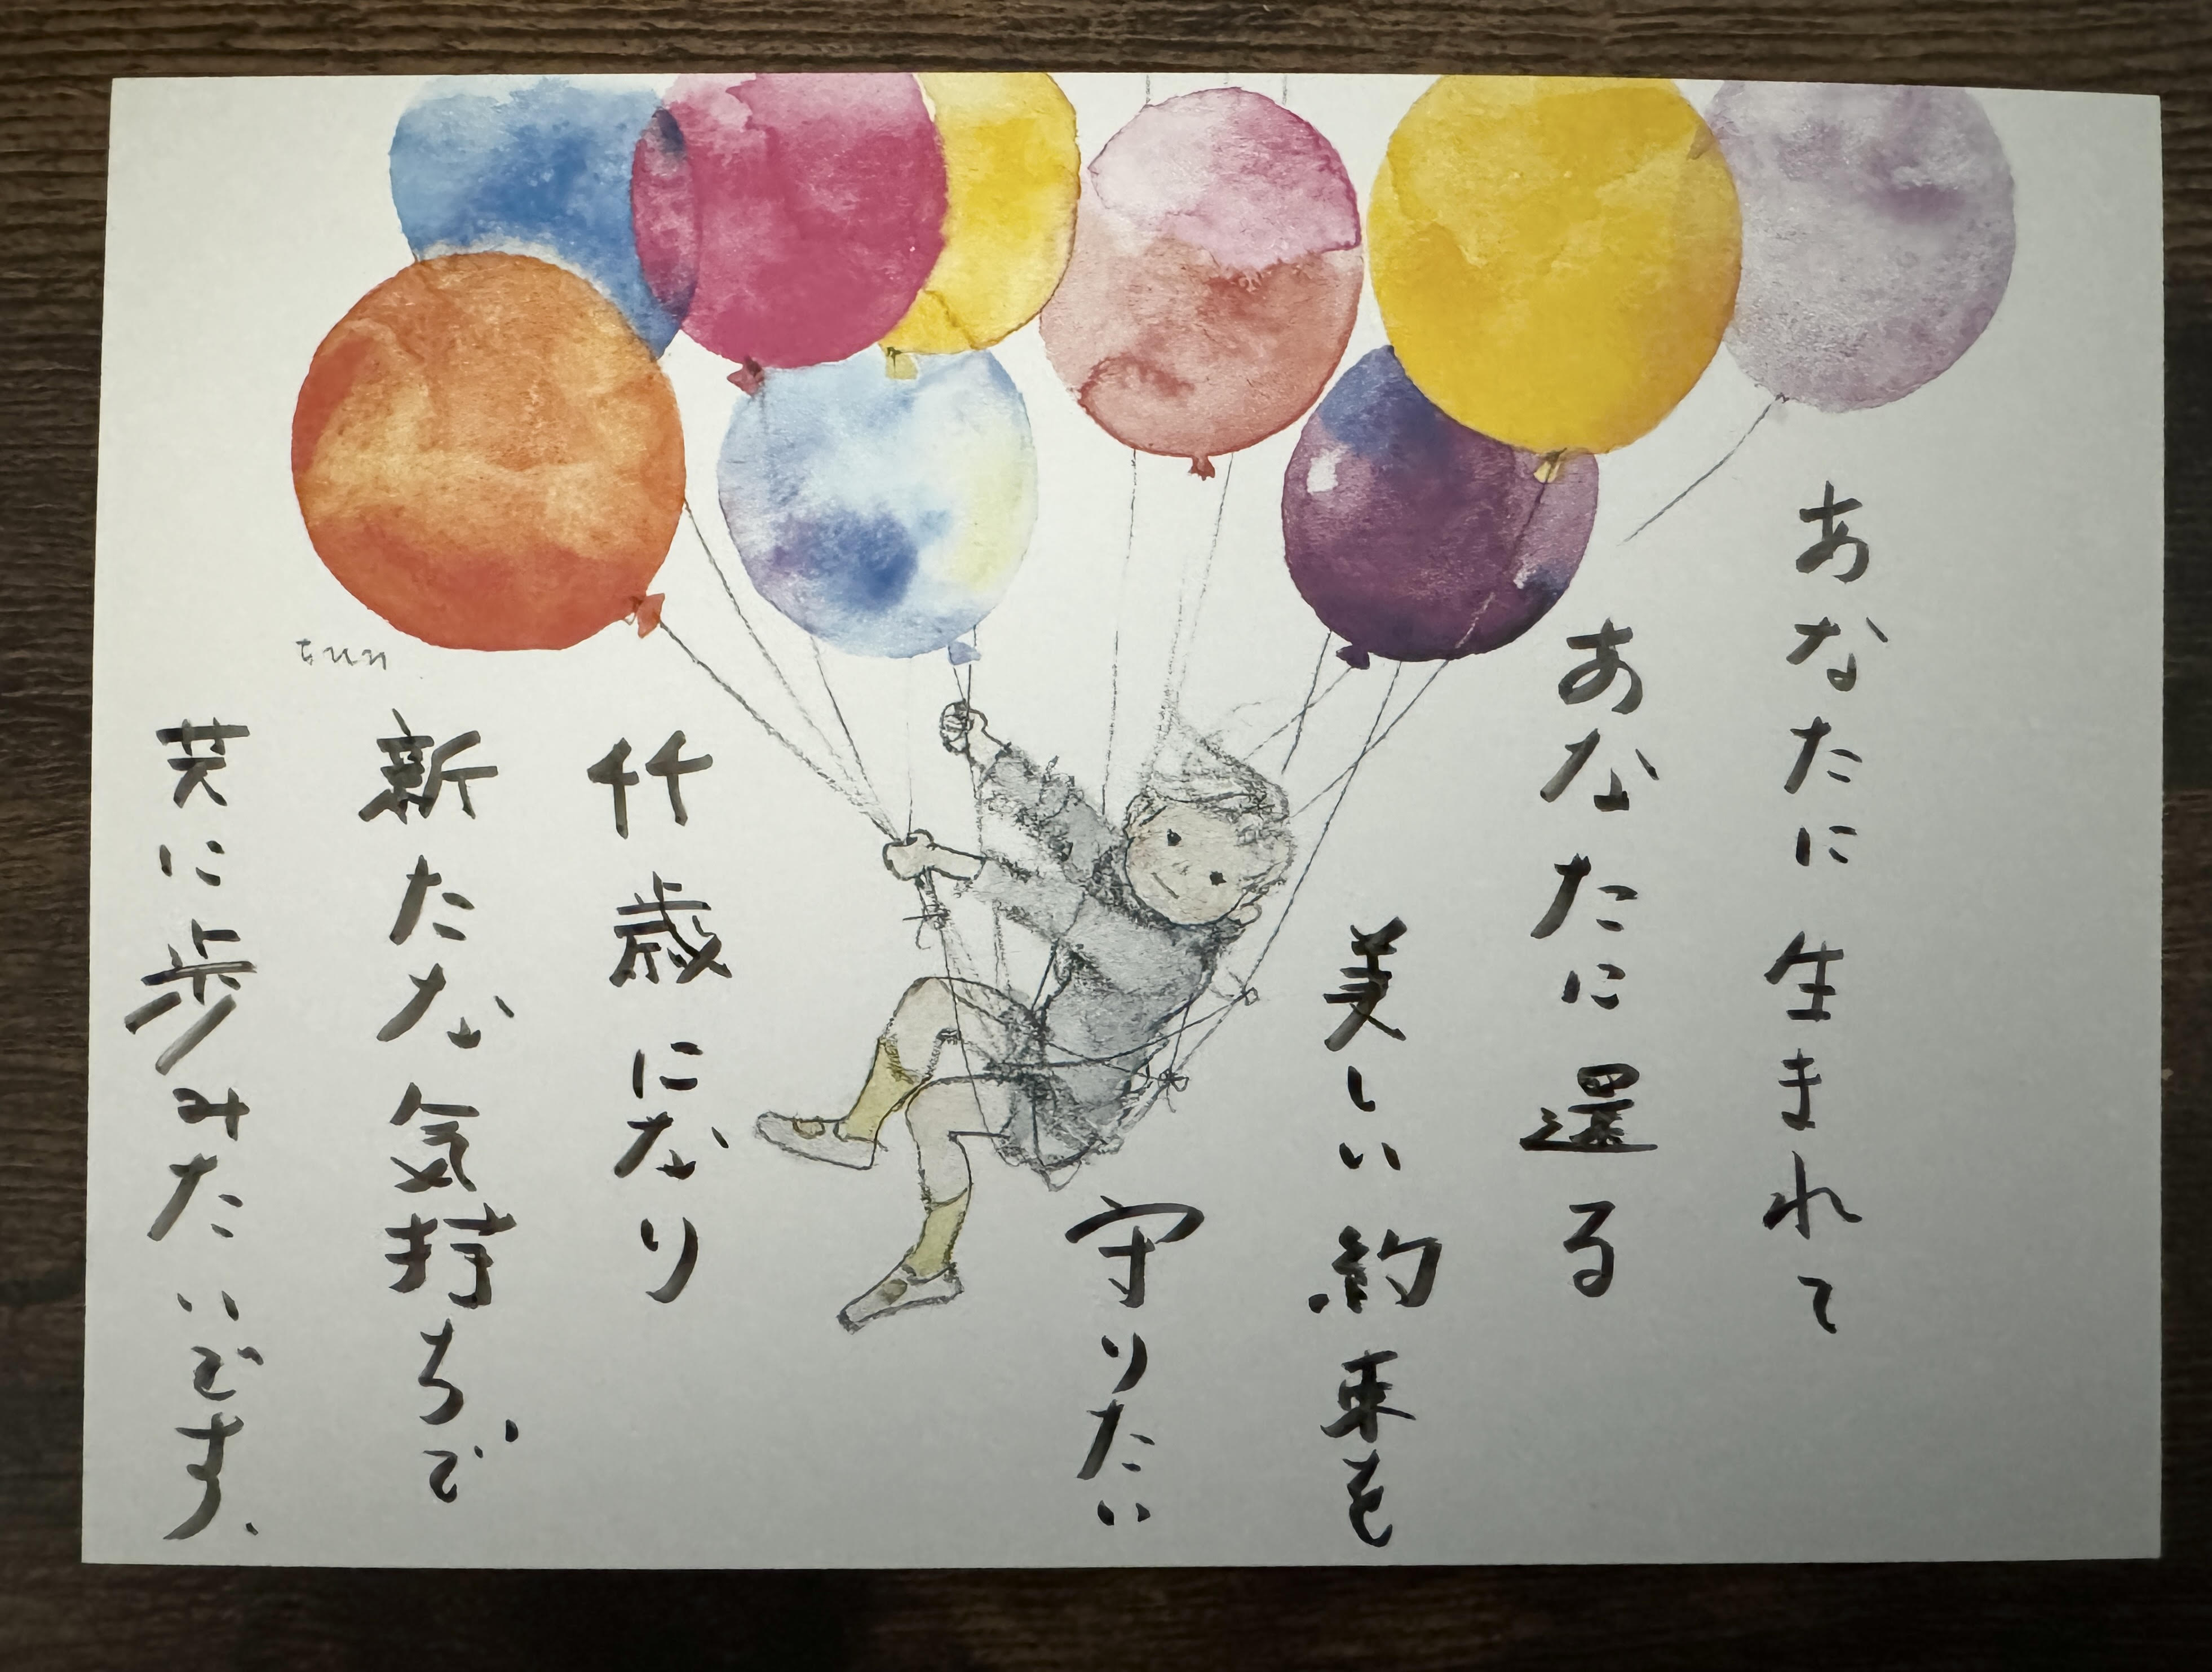 あなたに生まれて
あなたに還る
美しい約束を
守りたい
歳になり
新たな気持ちで
共に歩みたいです、
ちひろ